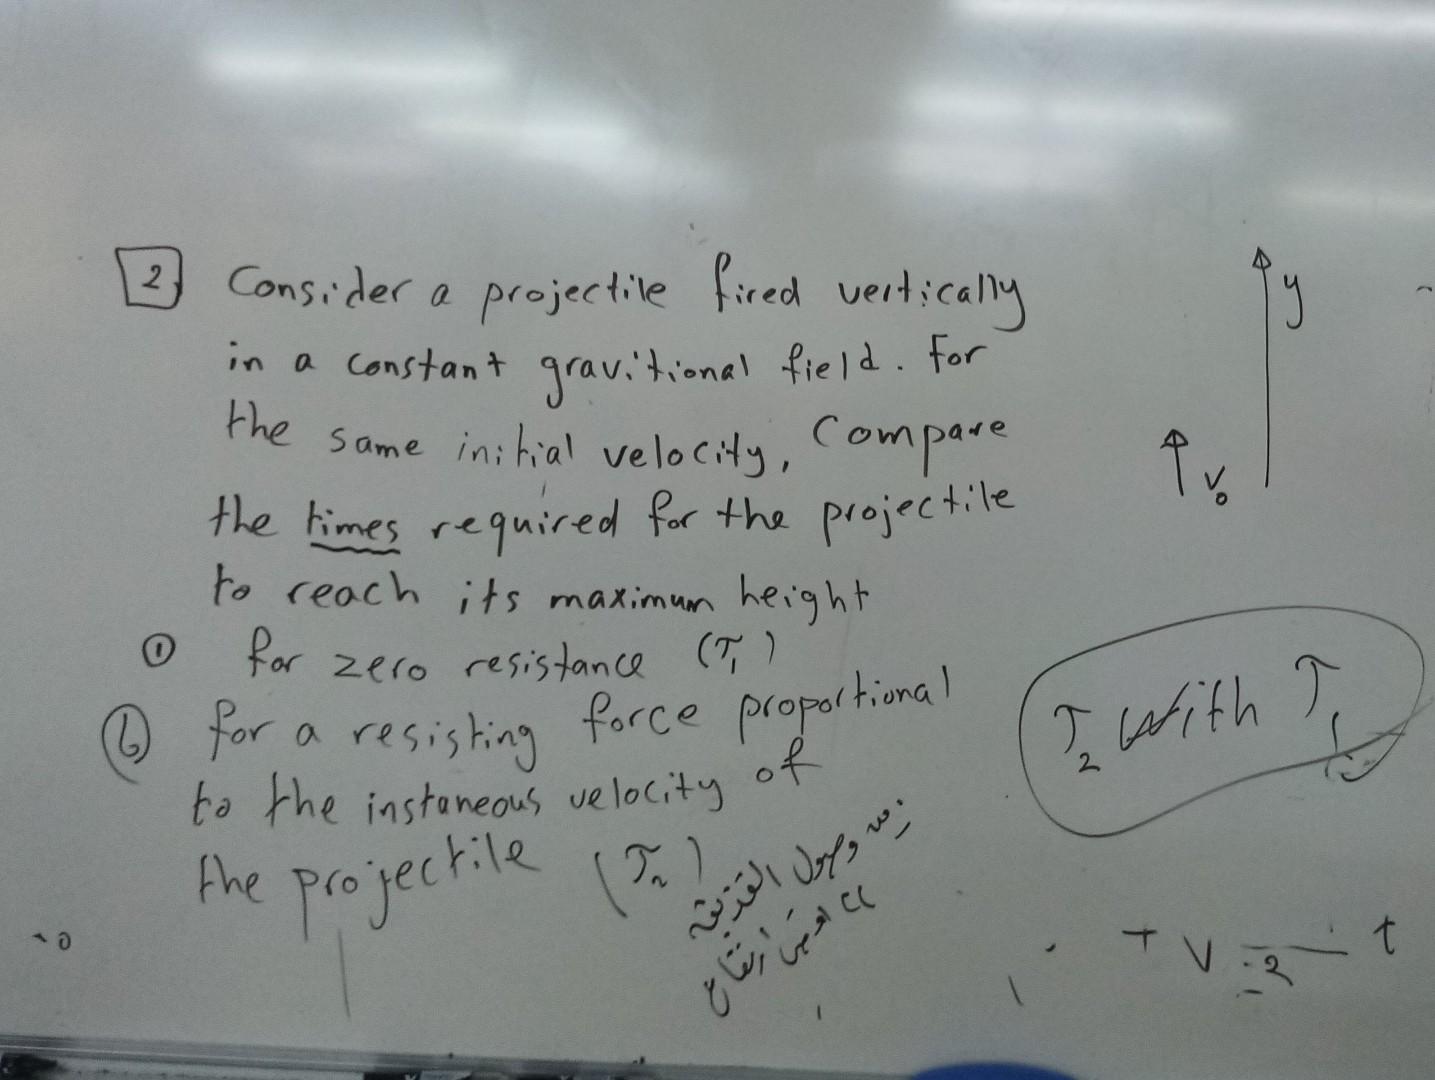 2 Consider a projectile fired vertically
in a constant gravitional field. For
the same initial velocity, Compare
the times required for the projectile
to reach its maximum height
① for zero resistance (T₁)
ⓑ for a resisting force proportional
to the instaneous velocity of
the projectile (T₂)
زمن وصول القذيفة
الى أقصى ارتفاع
y
v₀
T₂ with T₁